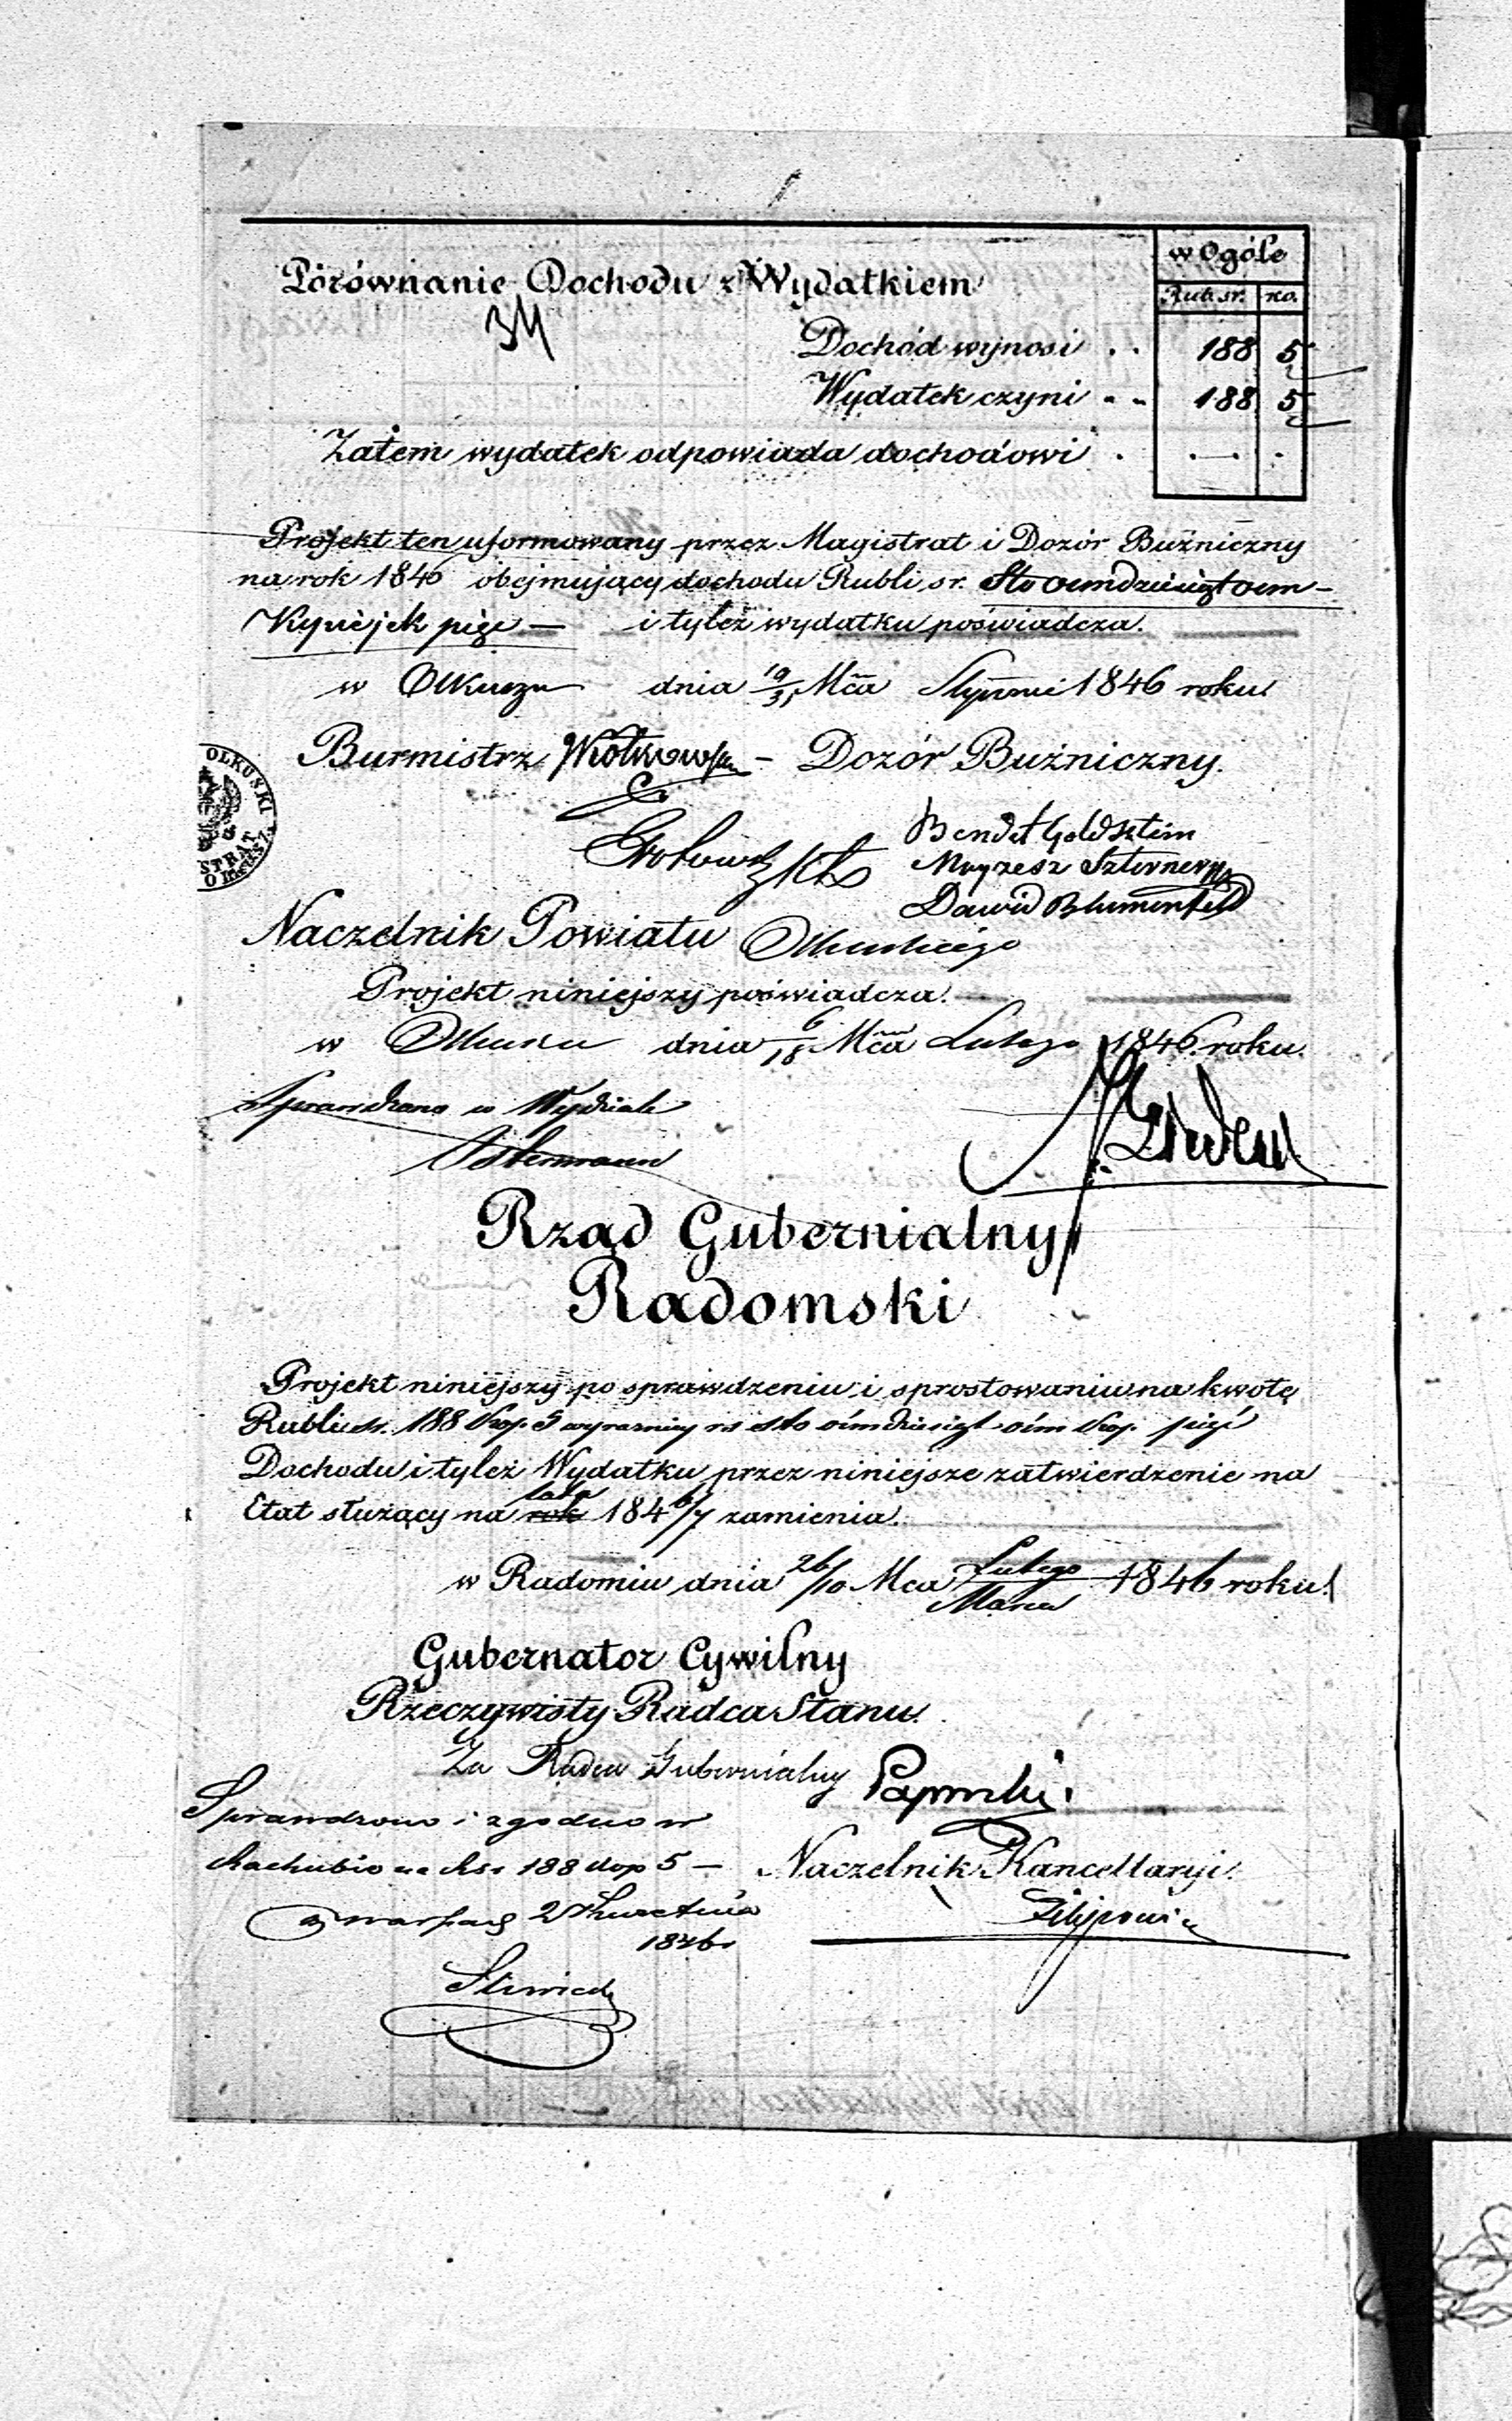 w Ogóle
Porównanie Dochodu z Wydatkiem
Rub. sr. | ko.
34
Dochód wynosi . . 188 5
Wydatek czyni . . 188 5
Zatem wydatek odpowiada dochodowi . . — . .
Projekt ten uformowany przez Magistrat i Dozór Bużniczny
na rok 1846 obejmujący dochodu Rubli sr. Sto osmdziesiąt osm —
Kopiejek pięć — i tyleż wydatku poświadcza.
w Olkuszu dnia 19/31 Mca Stycznia 1846 roku.
Burmistrz — Dozór Bużniczny.
OLKUSKI
Bendet Goldsztein
Moyzesz
Dawid Blumenfeld
Naczelnik Powiatu Olkuskiego
Projekt niniejszy poświadcza.
w Olkuszu dnia 6/18 Mca Lutego 1846 roku.
Sprawdzono w Wydziale
Rząd Gubernialny
Radomski
Projekt niniejszy po sprawdzeniu i sprostowaniu na kwotę
Rubli sr. 188 Kop. 5 wyraźniey rs sto ośmdziesiąt ośm Kop. pięć
Dochodu i tyleż Wydatku przez niniejsze zatwierdzenie na
lata
Etat służący na rok 1846/7 zamienia.
w Radomiu dnia 26/10 Mca Lutego/Marca 1846 roku.
Gubernator Cywilny
Rzeczywisty Radca Stanu.
Za Radca Gubernialny
Sprawdzono i zgodno w
Rachubie na Rsr 188 kop 5 —
Naczelnik Kancellaryi.
Kwietnia
1846